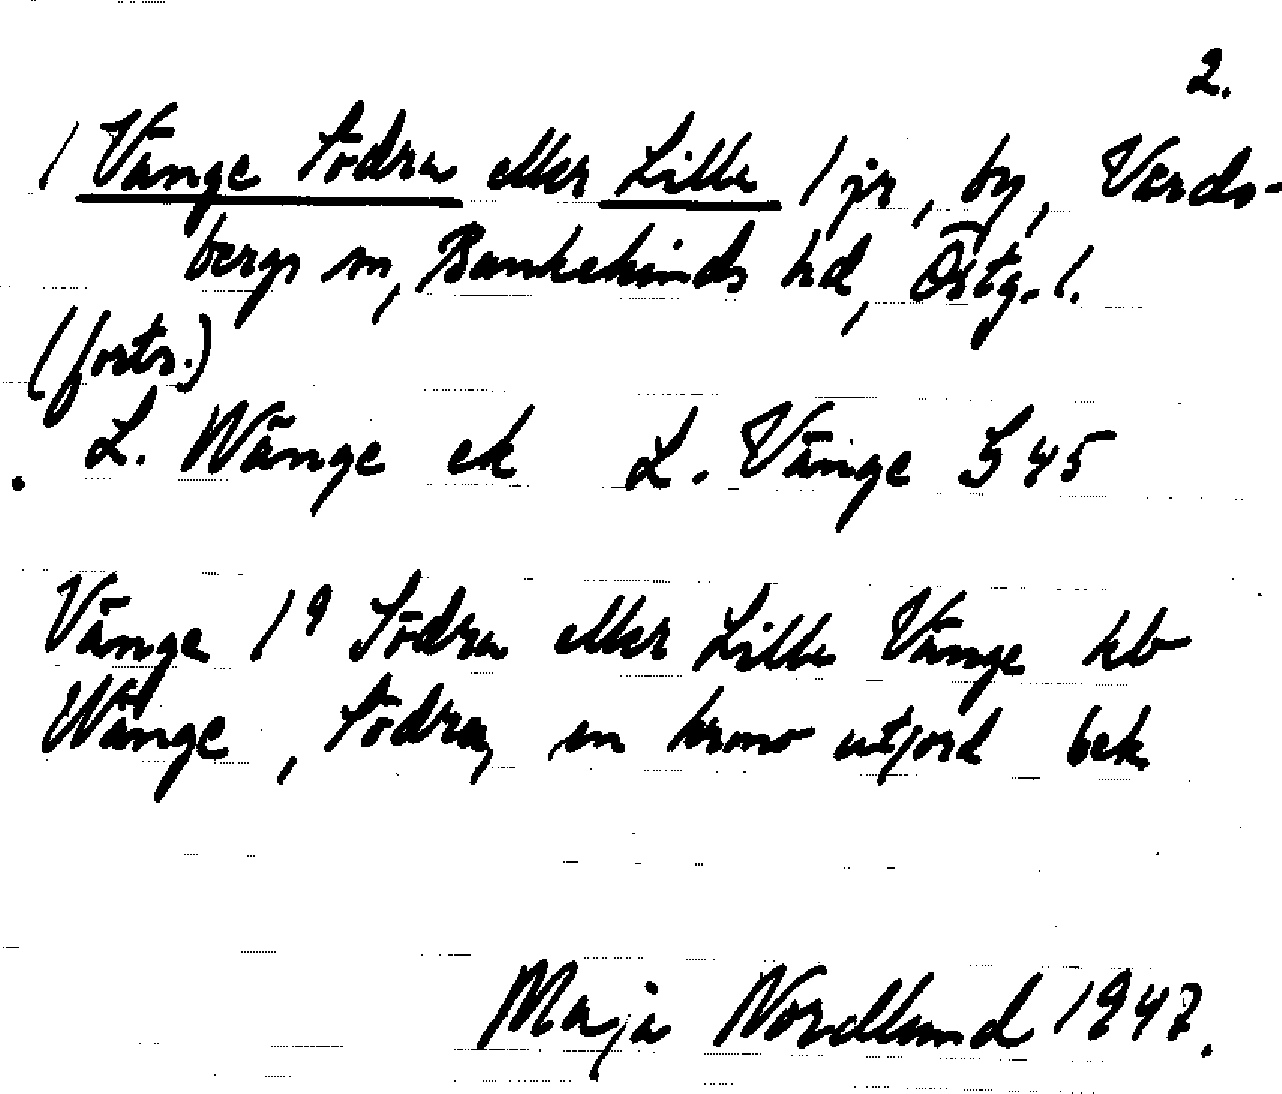 2.
/ Vänge Södra eller Lilla / jr, by, Vårds-
bergs sn, Bankekinds hd, Östg. l.
(forts.)
L. Wänge ek L. Vänge G 45
Vänge 1⁹ Södra eller Lilla Vänge hb
Wänge, Södra, en krono utjord bek
Maja Nordlund 1947.